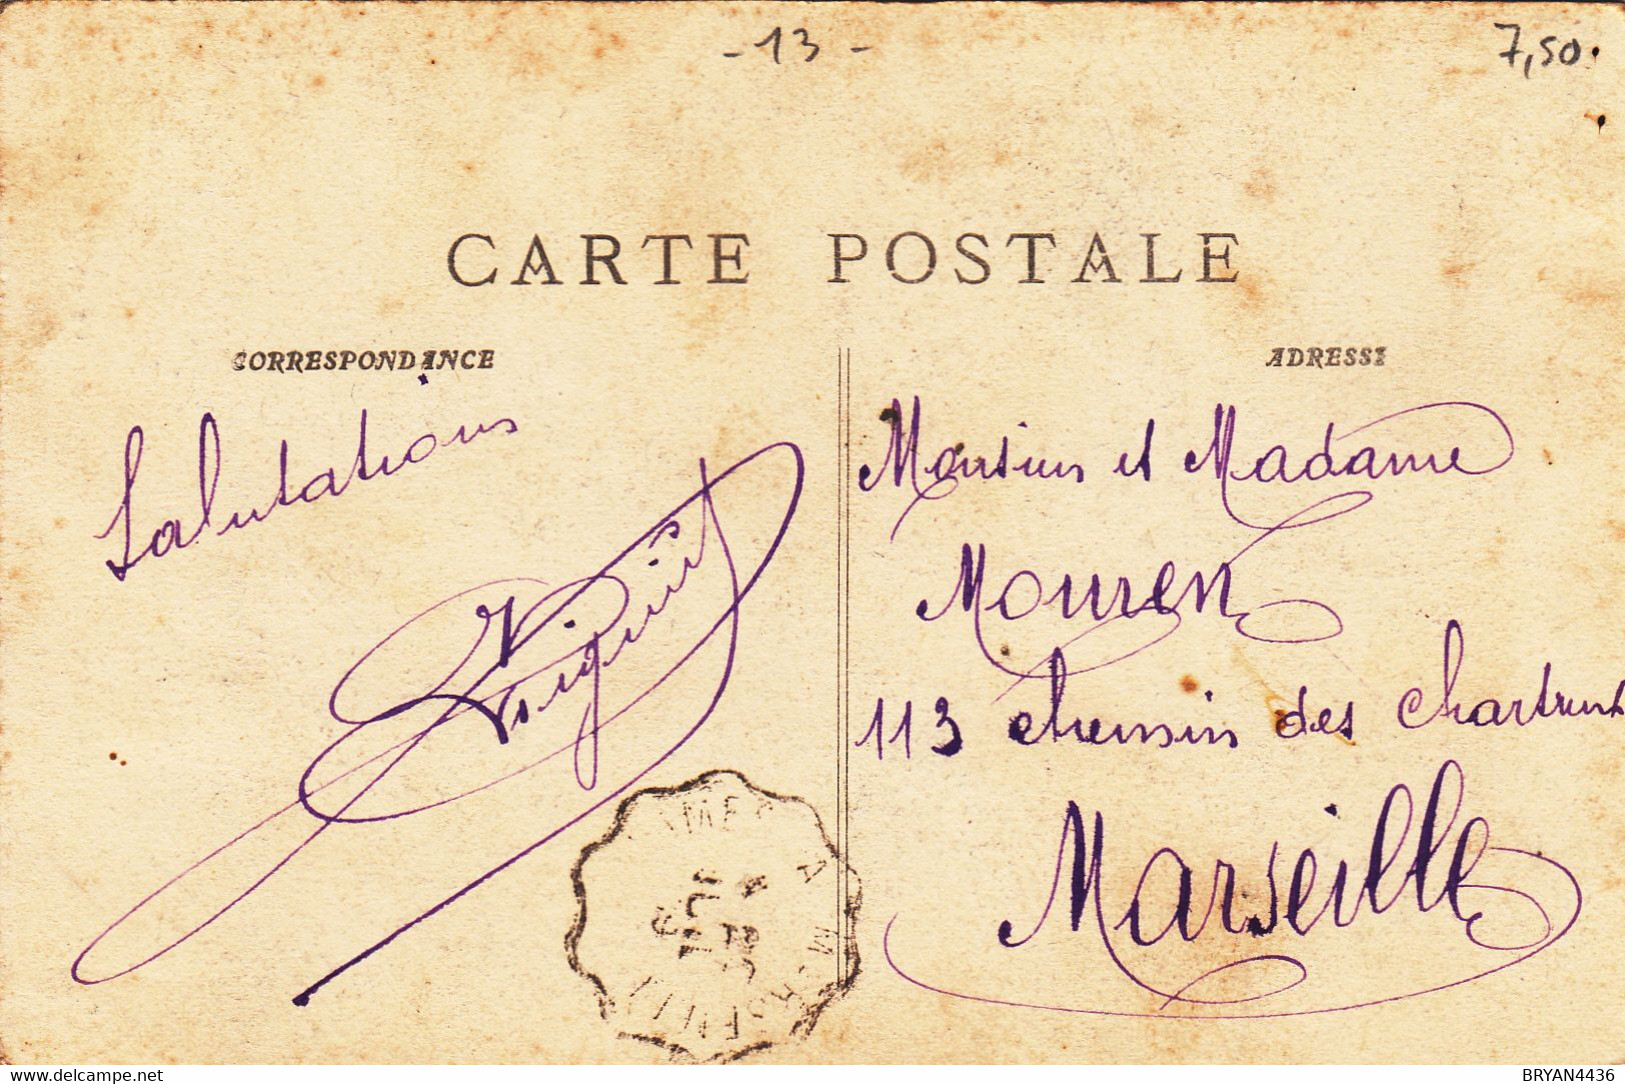 - 13 -
7,50.
CARTE POSTALE
CORRESPONDANCE
ADRESSE
Salutations
Monsieur et Madame
Mouren
113 chemin des Chartreux
Marseille
A MARSEILLE
delcampe.net
BRYAN4436